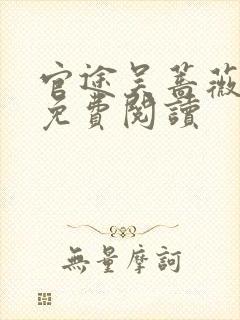 官途吴蔷薇
免費閱讀
無量摩訶